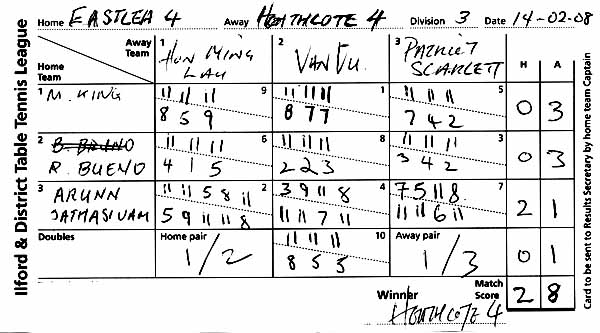 Home EASTLEA 4 Away HEATHCOTE 4 Division 3 Date 14-02-08
Ilford & District Table Tennis League
Away Team
Home Team
1 HON MING LAU
2 VAN VU
3 PATRICT SCARLETT
H A
1 M. KING
11 11 11 9
8 5 9
11 11 11 1
8 7 7
11 11 11 5
7 4 2
0 3
2 B. BRUNO
R. BUENO
11 11 11 6
4 1 5
11 11 11 8
2 2 3
11 11 11 3
3 4 2
0 3
3 ARUNN SATHASIVAM
11 11 5 8 11 2
5 9 11 11 8
3 9 11 8 4
11 11 7 11
7 5 11 8 7
11 11 6 11
2 1
Doubles
Home pair
1/2
11 11 11 10
8 5 5
Away pair
1/3
0 1
Winner HEATHCOTE 4
Match Score 2 8
Card to be sent to Results Secretary by home team Captain